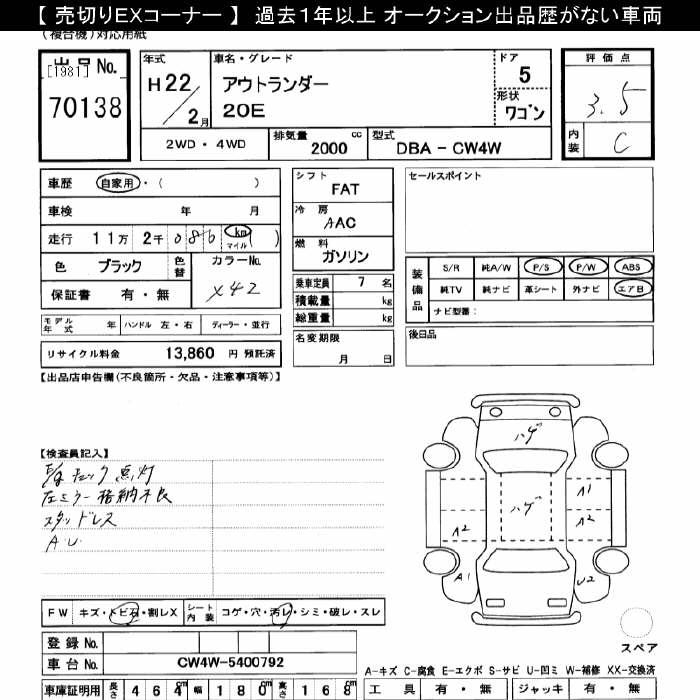 【 売切りEXコーナー 】 過去１年以上 オークション出品歴がない車両
(複合機)対応用紙
出品No.
[1981]
70138
年式
H22
2月
車名・グレード
アウトランダー
20E
ドア
5
形状
ワゴン
評価点
3.5
内装
C
2WD・4WD
排気量 cc
2000
型式
DBA - CW4W
車歴 自家用・( )
車検 年 月
走行 11万 2千 086 km マイル ( )
色 ブラック 色替
カラーNo.
X42
保証書 有・無
シフト
FAT
冷房
AAC
燃料
ガソリン
乗車定員 7 名
積載量 kg
総重量 kg
セールスポイント
装備品
S/R 純A/W P/S P/W ABS
純TV 純ナビ 革シート 外ナビ エアB
ナビ型番：
モデル年式 年 ハンドル 左・右 ディーラー・並行
リサイクル料金 13,860 円 預託済
名変期限
月 日
後日品
【出品店申告欄(不良箇所・欠品・注意事項等)】
【検査員記入】
E/gチェック点灯
左ミラー格納不良
スタッドレス
A.U.
ハゲ
ハゲ
A1
A2
A2
A1
U2
スペア
FW キズ・トビ石・割レX シート内装 コゲ・穴・汚レ・シミ・破レ・スレ
登録No.
車台No. CW4W-5400792
A-キズ C-腐食 E-エクボ S-サビ U-凹ミ W-補修 XX-交換済
車庫証明用 長さ 464cm 幅 180cm 高さ 168cm
工具 有・無 ジャッキ 有・無